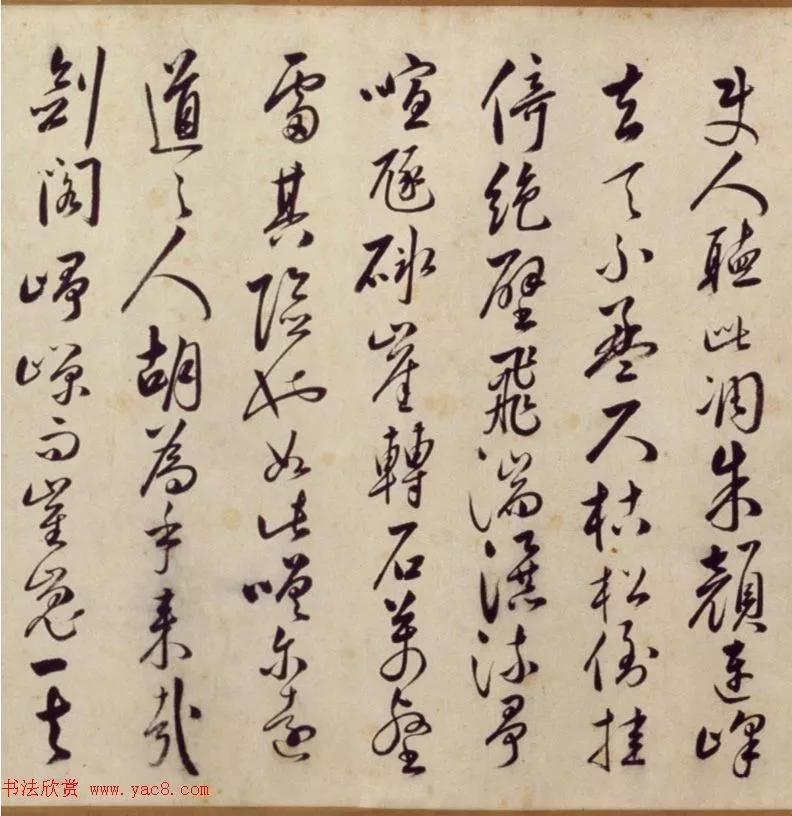 使人聽此凋朱顏連峰
去天不盈尺枯松倒挂
倚絕壁飛湍瀑流爭
喧豗砯崖轉石萬壑
雷其險也如此嗟爾遠
道之人胡為乎來哉
劍閣崢嶸而崔嵬一夫
书法欣赏 www.yac8.com